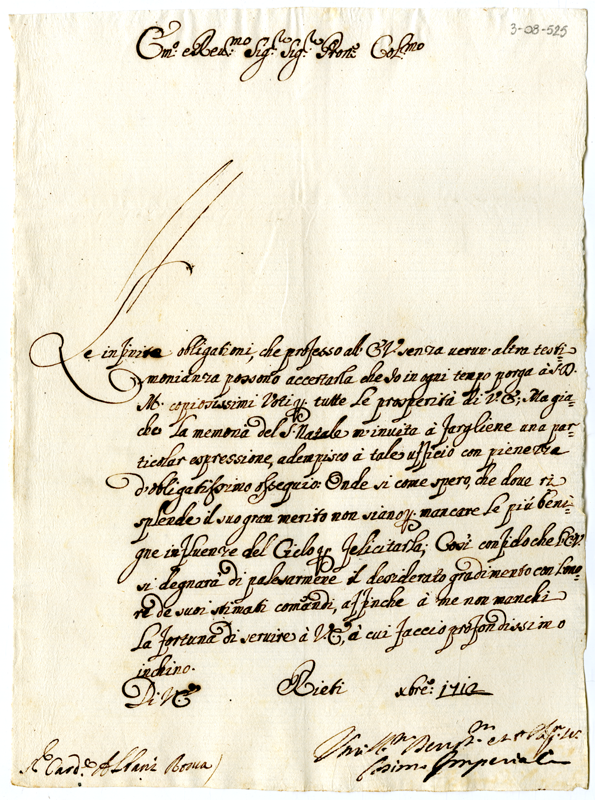 3-08-525
Em.o e Reu.mo Sig.r Sig.r Pron.e Col.mo
Le infinite obligationi, che professo all' E.V. senza uerun' altra testi-
monianza possono accertarla che Io in ogni tempo porga à S.D.
M. copiosissimi Voti p. tutte le prosperità di V.E.; Ma gia-
che la memoria del S. Natale m'inuita à fargliene una par-
ticolar espressione, adempisco à tale ufficio con pienezza
d'obligatissimo ossequio. Onde si come spero, che doue ri-
splende il suo gran merito non siano p. mancare le più beni-
gne influenze del Cielo p. felicitarla; Così confido che l'E.V.
si degnarà di palesarmene il desiderato gradimento con l'ono-
re de suoi stimati comandi, affinche à me non manchi
la fortuna di seruire à V.E., à cui faccio profondissimo
inchino.
Di V.E. Rieti xbre: 1712
Card.e Albani Roma
Vm.o Deu.mo et
Cosimo Imperiale